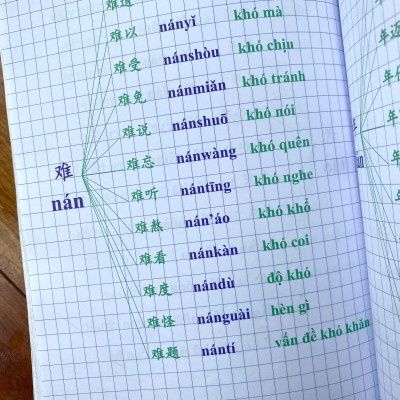 难道
难以 nányǐ khó mà
难受 nánshòu khó chịu
难免 nánmiǎn khó tránh
难说 nánshuō khó nói
难 nán
难忘 nánwàng khó quên
难听 nántīng khó nghe
难熬 nán'áo khó khổ
难看 nánkàn khó coi
难度 nándù độ khó
难怪 nánguài hèn gì
难题 nántí vấn đề khó khăn
年
年
年
年